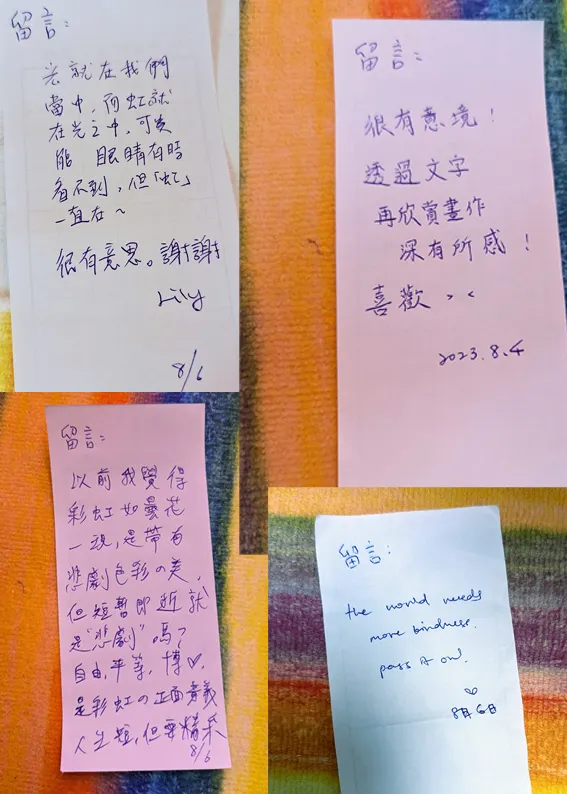 留言：
光就在我們
當中，而虹就
在光之中，可
能 眼睛有時
看不到，但「虹」
一直在～
很有意思。謝謝
Lily
8/6
留言：
很有意境！
透過文字
再欣賞畫作
深有所感！
喜歡 > <
2023.8.4
留言：
以前我覺得
彩虹如曇花
一現，是帶有
悲劇色彩の美，
但短暫即逝就
是"悲劇"嗎？
自由，平等，博♡，
是彩虹の正面意義
人生短，但要精采
8/6
留言：
the world needs
more kindness.
pass it on!
♡
8月6日